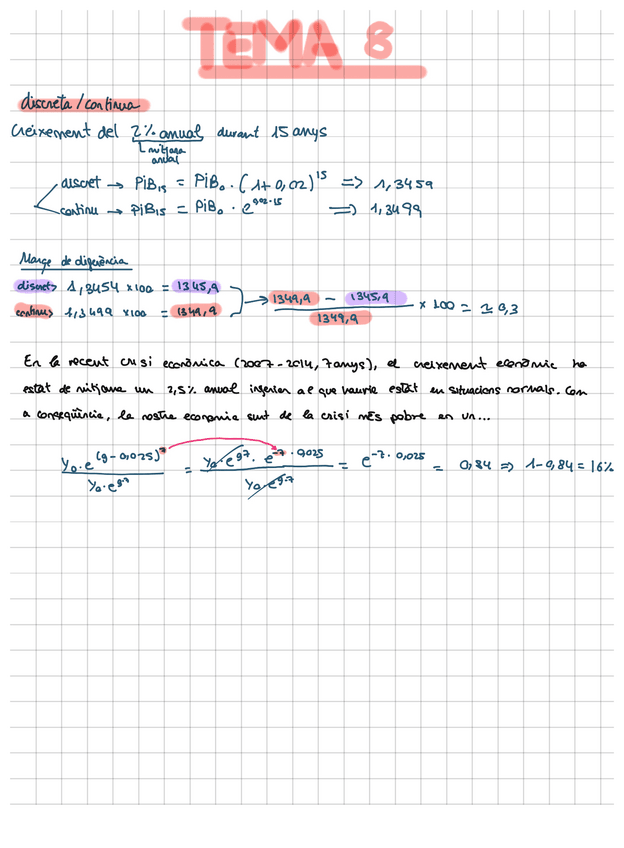 TEMA 8
discreta/continua
Creixement del 2% anual durant 15 anys
mitjana
anual
discret → PiB₁₅ = PiB₀ · (1+0,02)¹⁵ => 1,3459
continu → PiB₁₅ = PiB₀ · e^0,02·15 => 1,3499
Marge de diferència
discret> 1,3454 ×100 = 1345,9
continu> 1,3499 ×100 = 1349,9
→ (1349,9 − 1345,9) / 1349,9 × 100 = ≃ 0,3
En la recent crisi econòmica (2007-2014, 7 anys), el creixement econòmic ha
estat de mitjana un 2,5% anual inferior al que hauria estat en situacions normals. Com
a conseqüència, la nostra economia surt de la crisi més pobre en un...
Y₀·e^(g-0,025)7 / Y₀·e^g·7 = Y₀·e^g7 · e^-7·0,025 / Y₀·e^g·7 = e^-7·0,025 = 0,84 => 1-0,84 = 16%